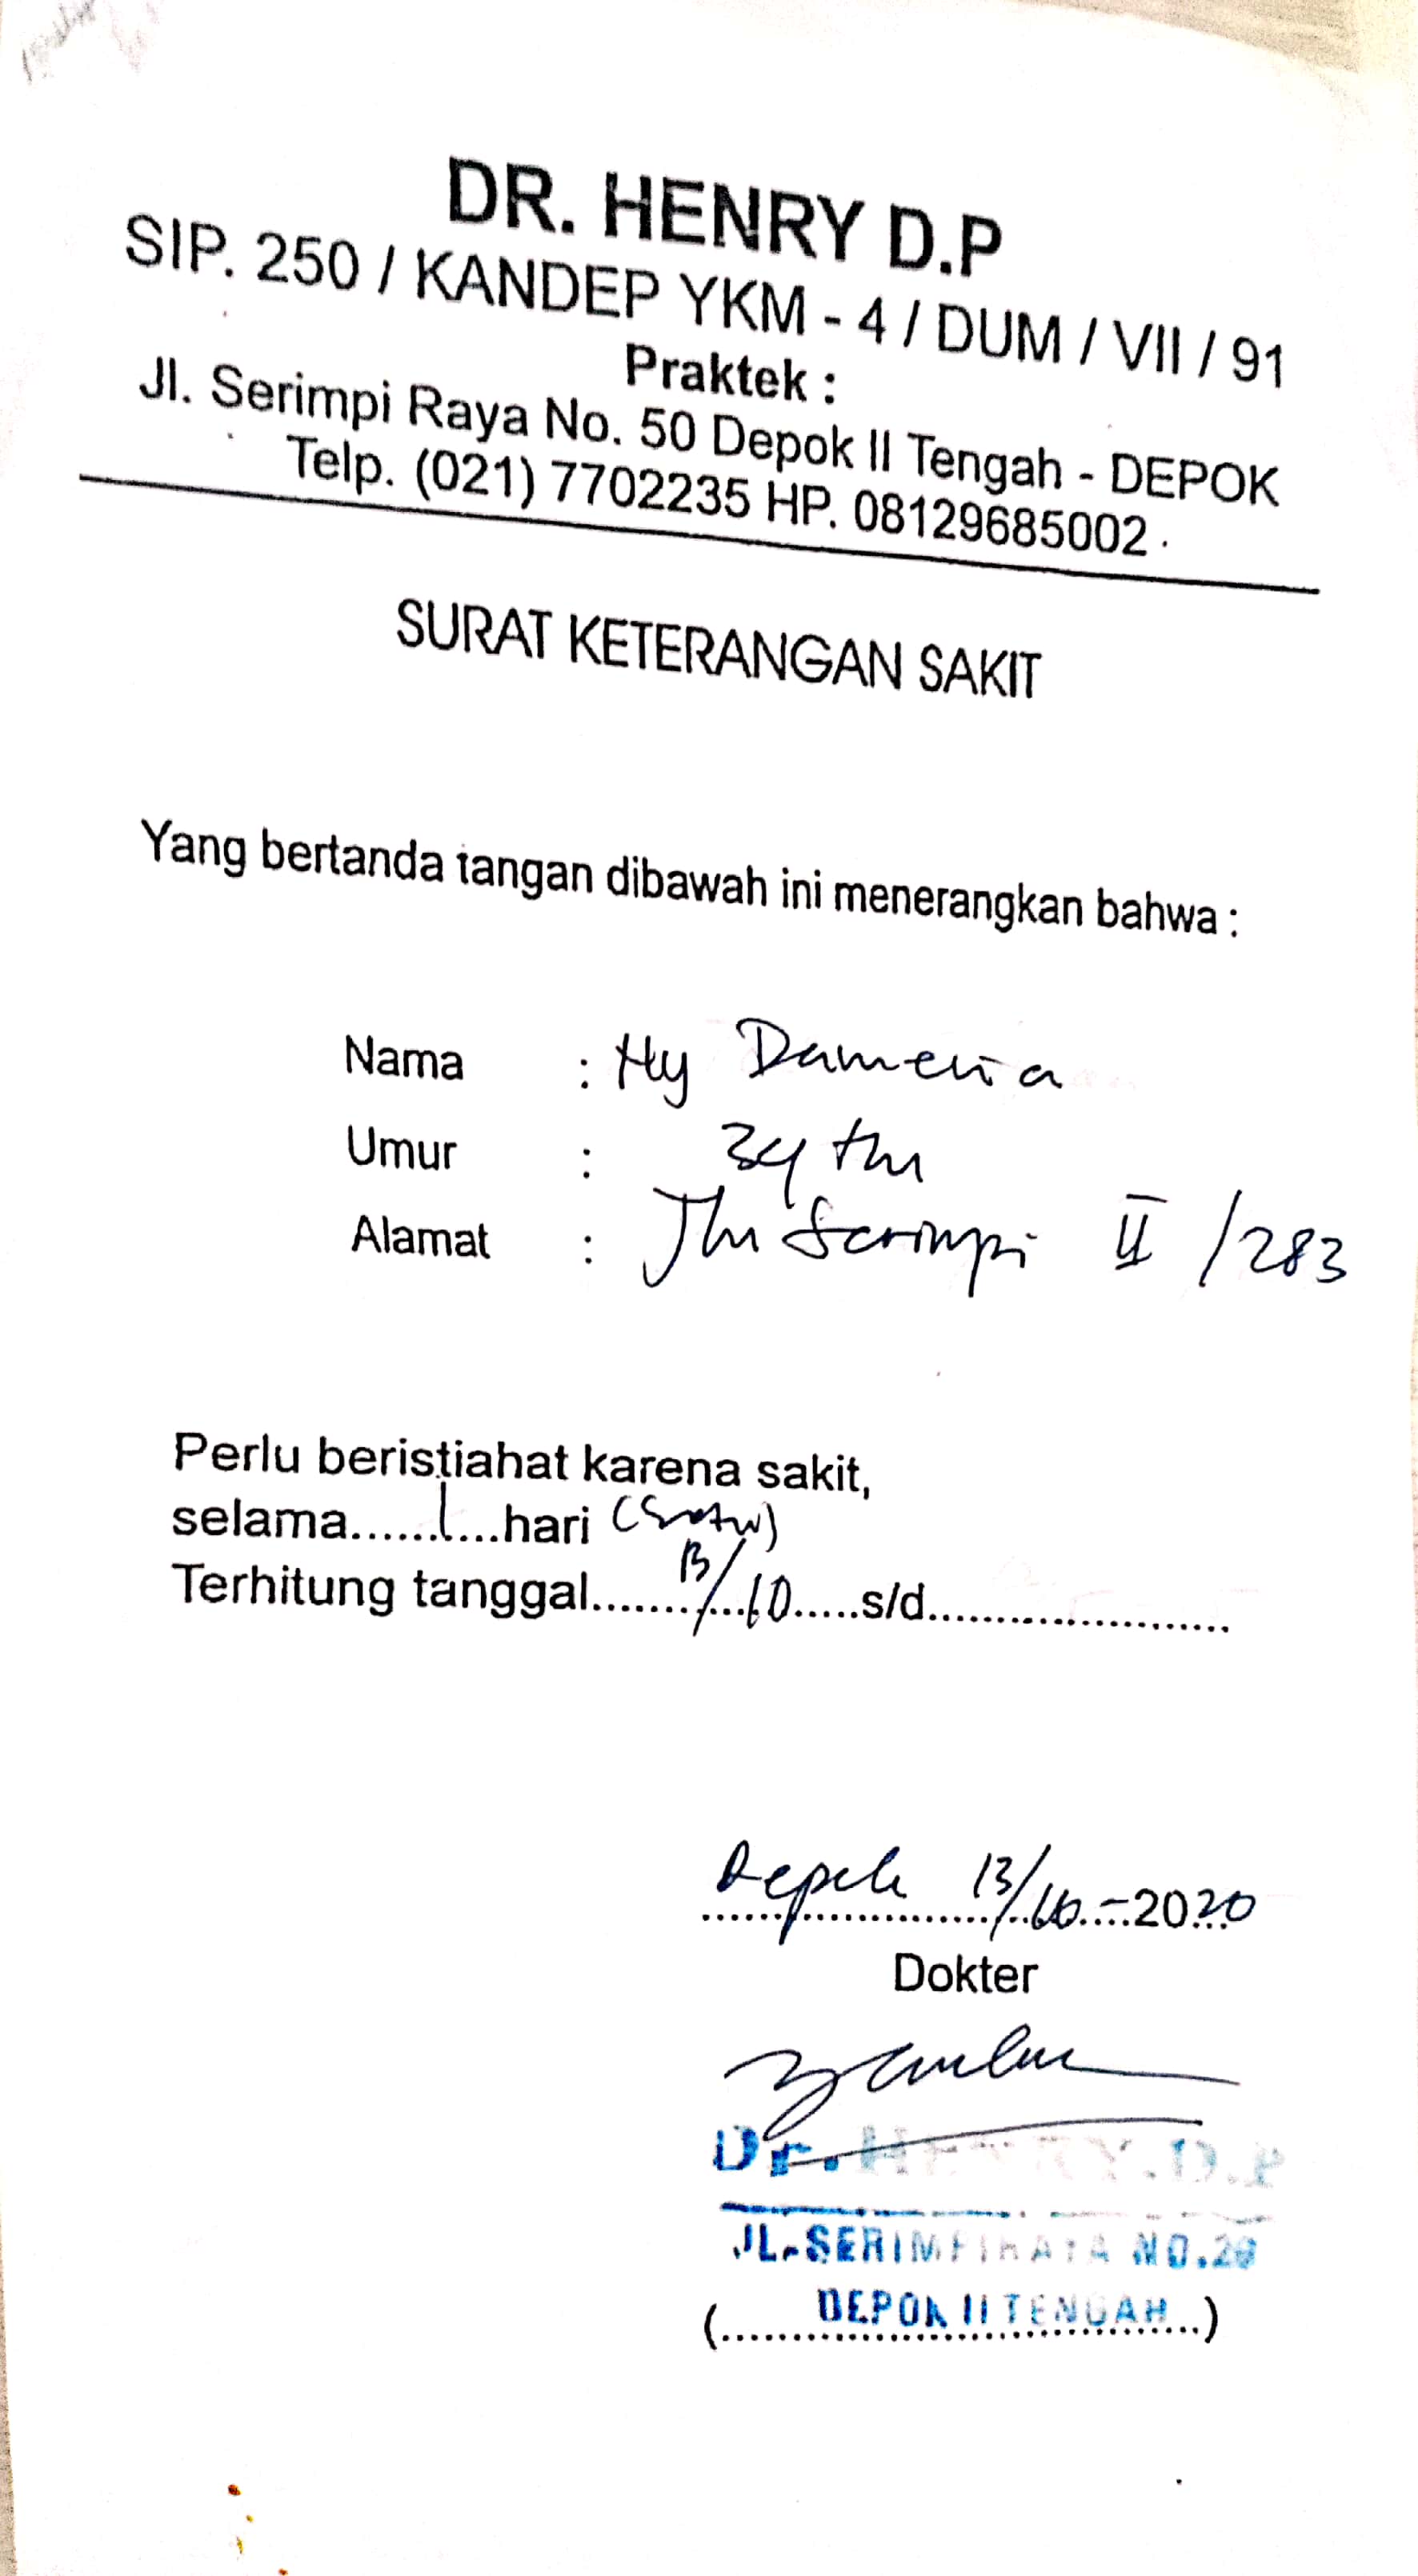 DR. HENRY D.P
SIP. 250 / KANDEP YKM - 4 / DUM / VII / 91
Praktek :
Jl. Serimpi Raya No. 50 Depok II Tengah - DEPOK
Telp. (021) 7702235 HP. 08129685002
SURAT KETERANGAN SAKIT
Yang bertanda tangan dibawah ini menerangkan bahwa :
Nama : Ny Dameria
Umur : 34 thn
Alamat : Jln Serimpi II /283
Perlu beristiahat karena sakit,
selama......1....hari (Satu)
Terhitung tanggal.......13/10.....s/d......................
Depok 13/10 - 2020
Dokter
Dr. HENRY.D.P
JL.SERIMPI RAYA NO.
DEPOK II TENGAH
(..................................)